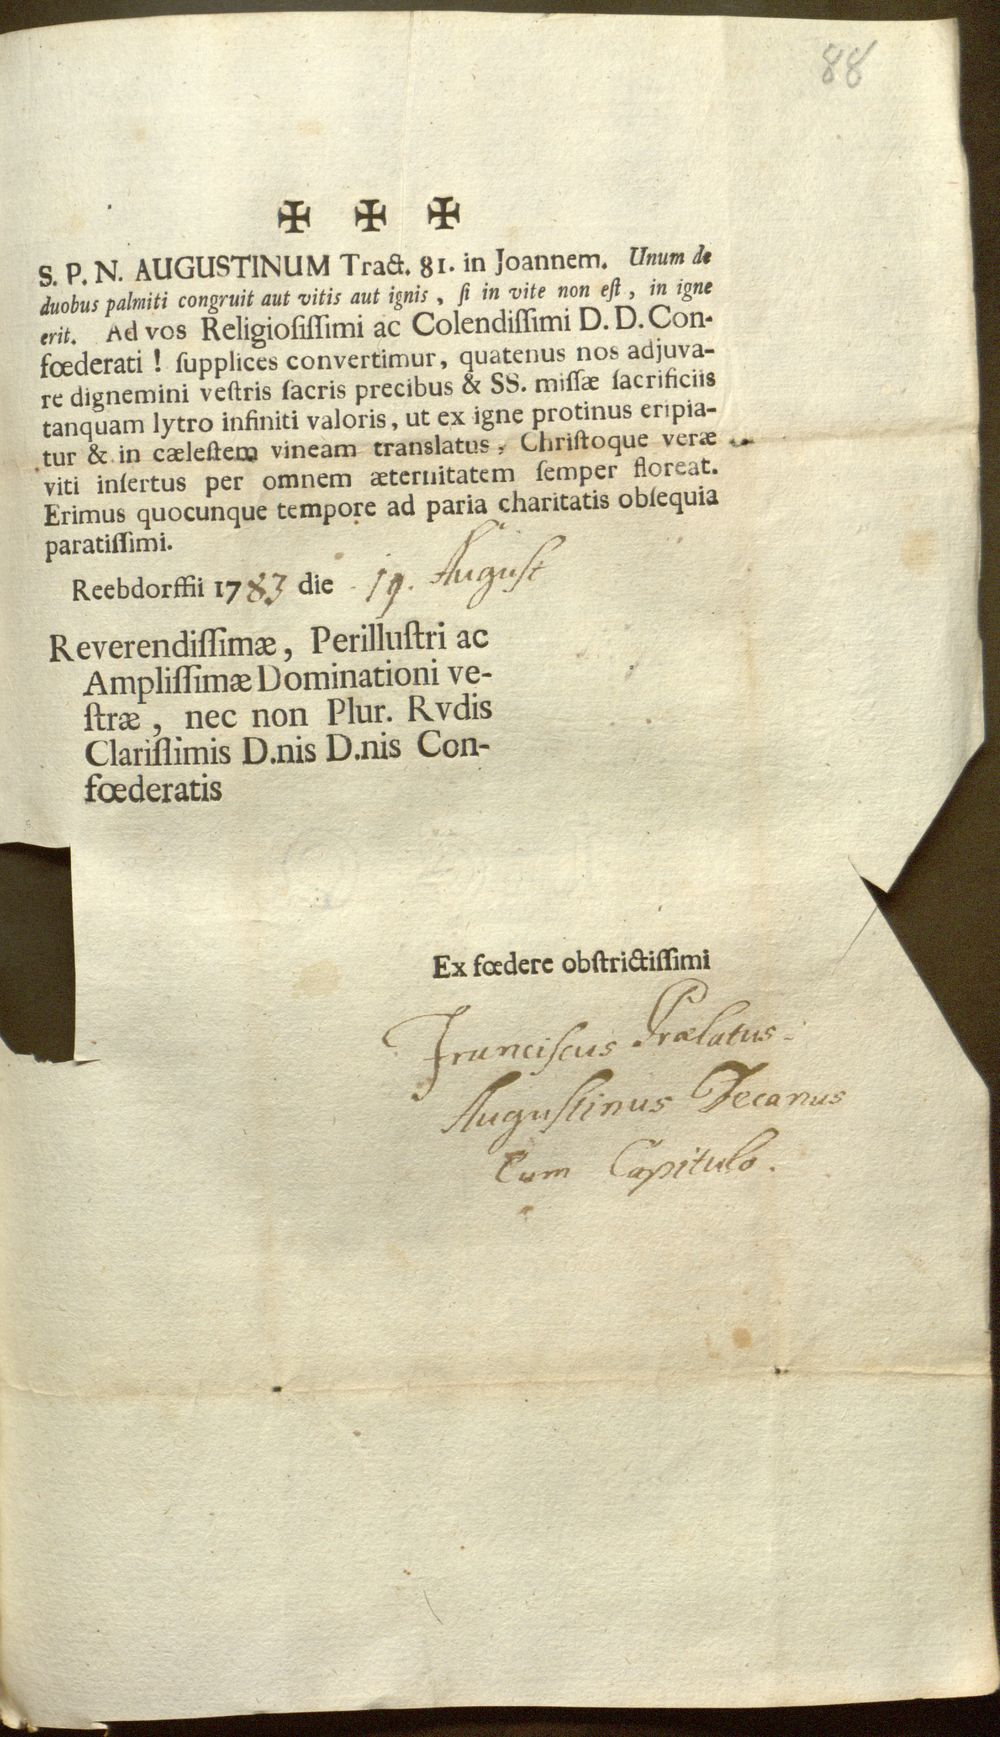 88
✠ ✠ ✠
S. P. N. AUGUSTINUM Tract. 81. in Joannem. Unum de
duobus palmiti congruit aut vitis aut ignis, ſi in vite non eſt, in igne
erit. Ad vos Religioſiſſimi ac Colendiſſimi D. D. Con-
fœderati! ſupplices convertimur, quatenus nos adjuva-
re dignemini veſtris ſacris precibus & SS. miſſæ ſacrificiis
tanquam lytro infiniti valoris, ut ex igne protinus eripia-
tur & in cæleſtem vineam translatus, Chriſtoque veræ
viti inſertus per omnem æternitatem ſemper floreat.
Erimus quocunque tempore ad paria charitatis obſequia
paratiſſimi.
Reebdorffii 1783 die 19. August
Reverendiſſimæ, Perilluſtri ac
Ampliſſimæ Dominationi ve-
ſtræ, nec non Plur. Rvdis
Clariſſimis D.nis D.nis Con-
fœderatis
Ex fœdere obſtrictiſſimi
Franciſcus Prælatus
Auguſtinus Decanus
Cum Capitulo.